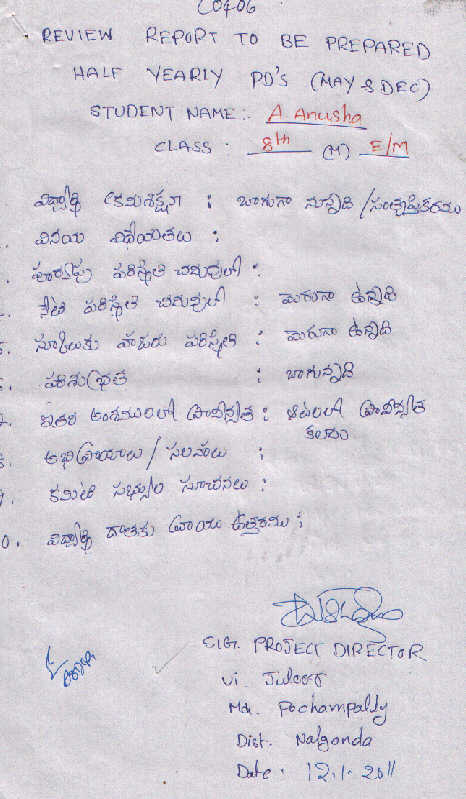 REVIEW REPORT TO BE PREPARED
HALF YEARLY PD'S (MAY & DEC)
STUDENT NAME:- A Anusha
CLASS : 8th (M) E/M
విద్యార్థి క్రమశిక్షణ : బాగుగా నున్నది / సంతృప్తికరము
వినయ విధేయతలు :
పూర్వపు పరిస్థితి చదువులో :
నేటి పరిస్థితి చదువులో : మెరుగా ఉన్నది
స్కూలుకు హాజరు పరిస్థితి : మెరుగా ఉన్నది
పరిశుభ్రత : బాగున్నది
ఇతర అంశములలో ప్రావీణ్యత : ఆటలలో ప్రావీణ్యత
కలదు
8. అభిప్రాయాలు / సలహాలు :
9. కమిటి సభ్యుల సూచనలు :
10. విద్యార్థి దాతకు వ్రాయు ఉత్తరము :
SIG. PROJECT DIRECTOR
Vi. Julooru
Md. Pochampally
Dist. Nalgonda
Date : 12.1.2011